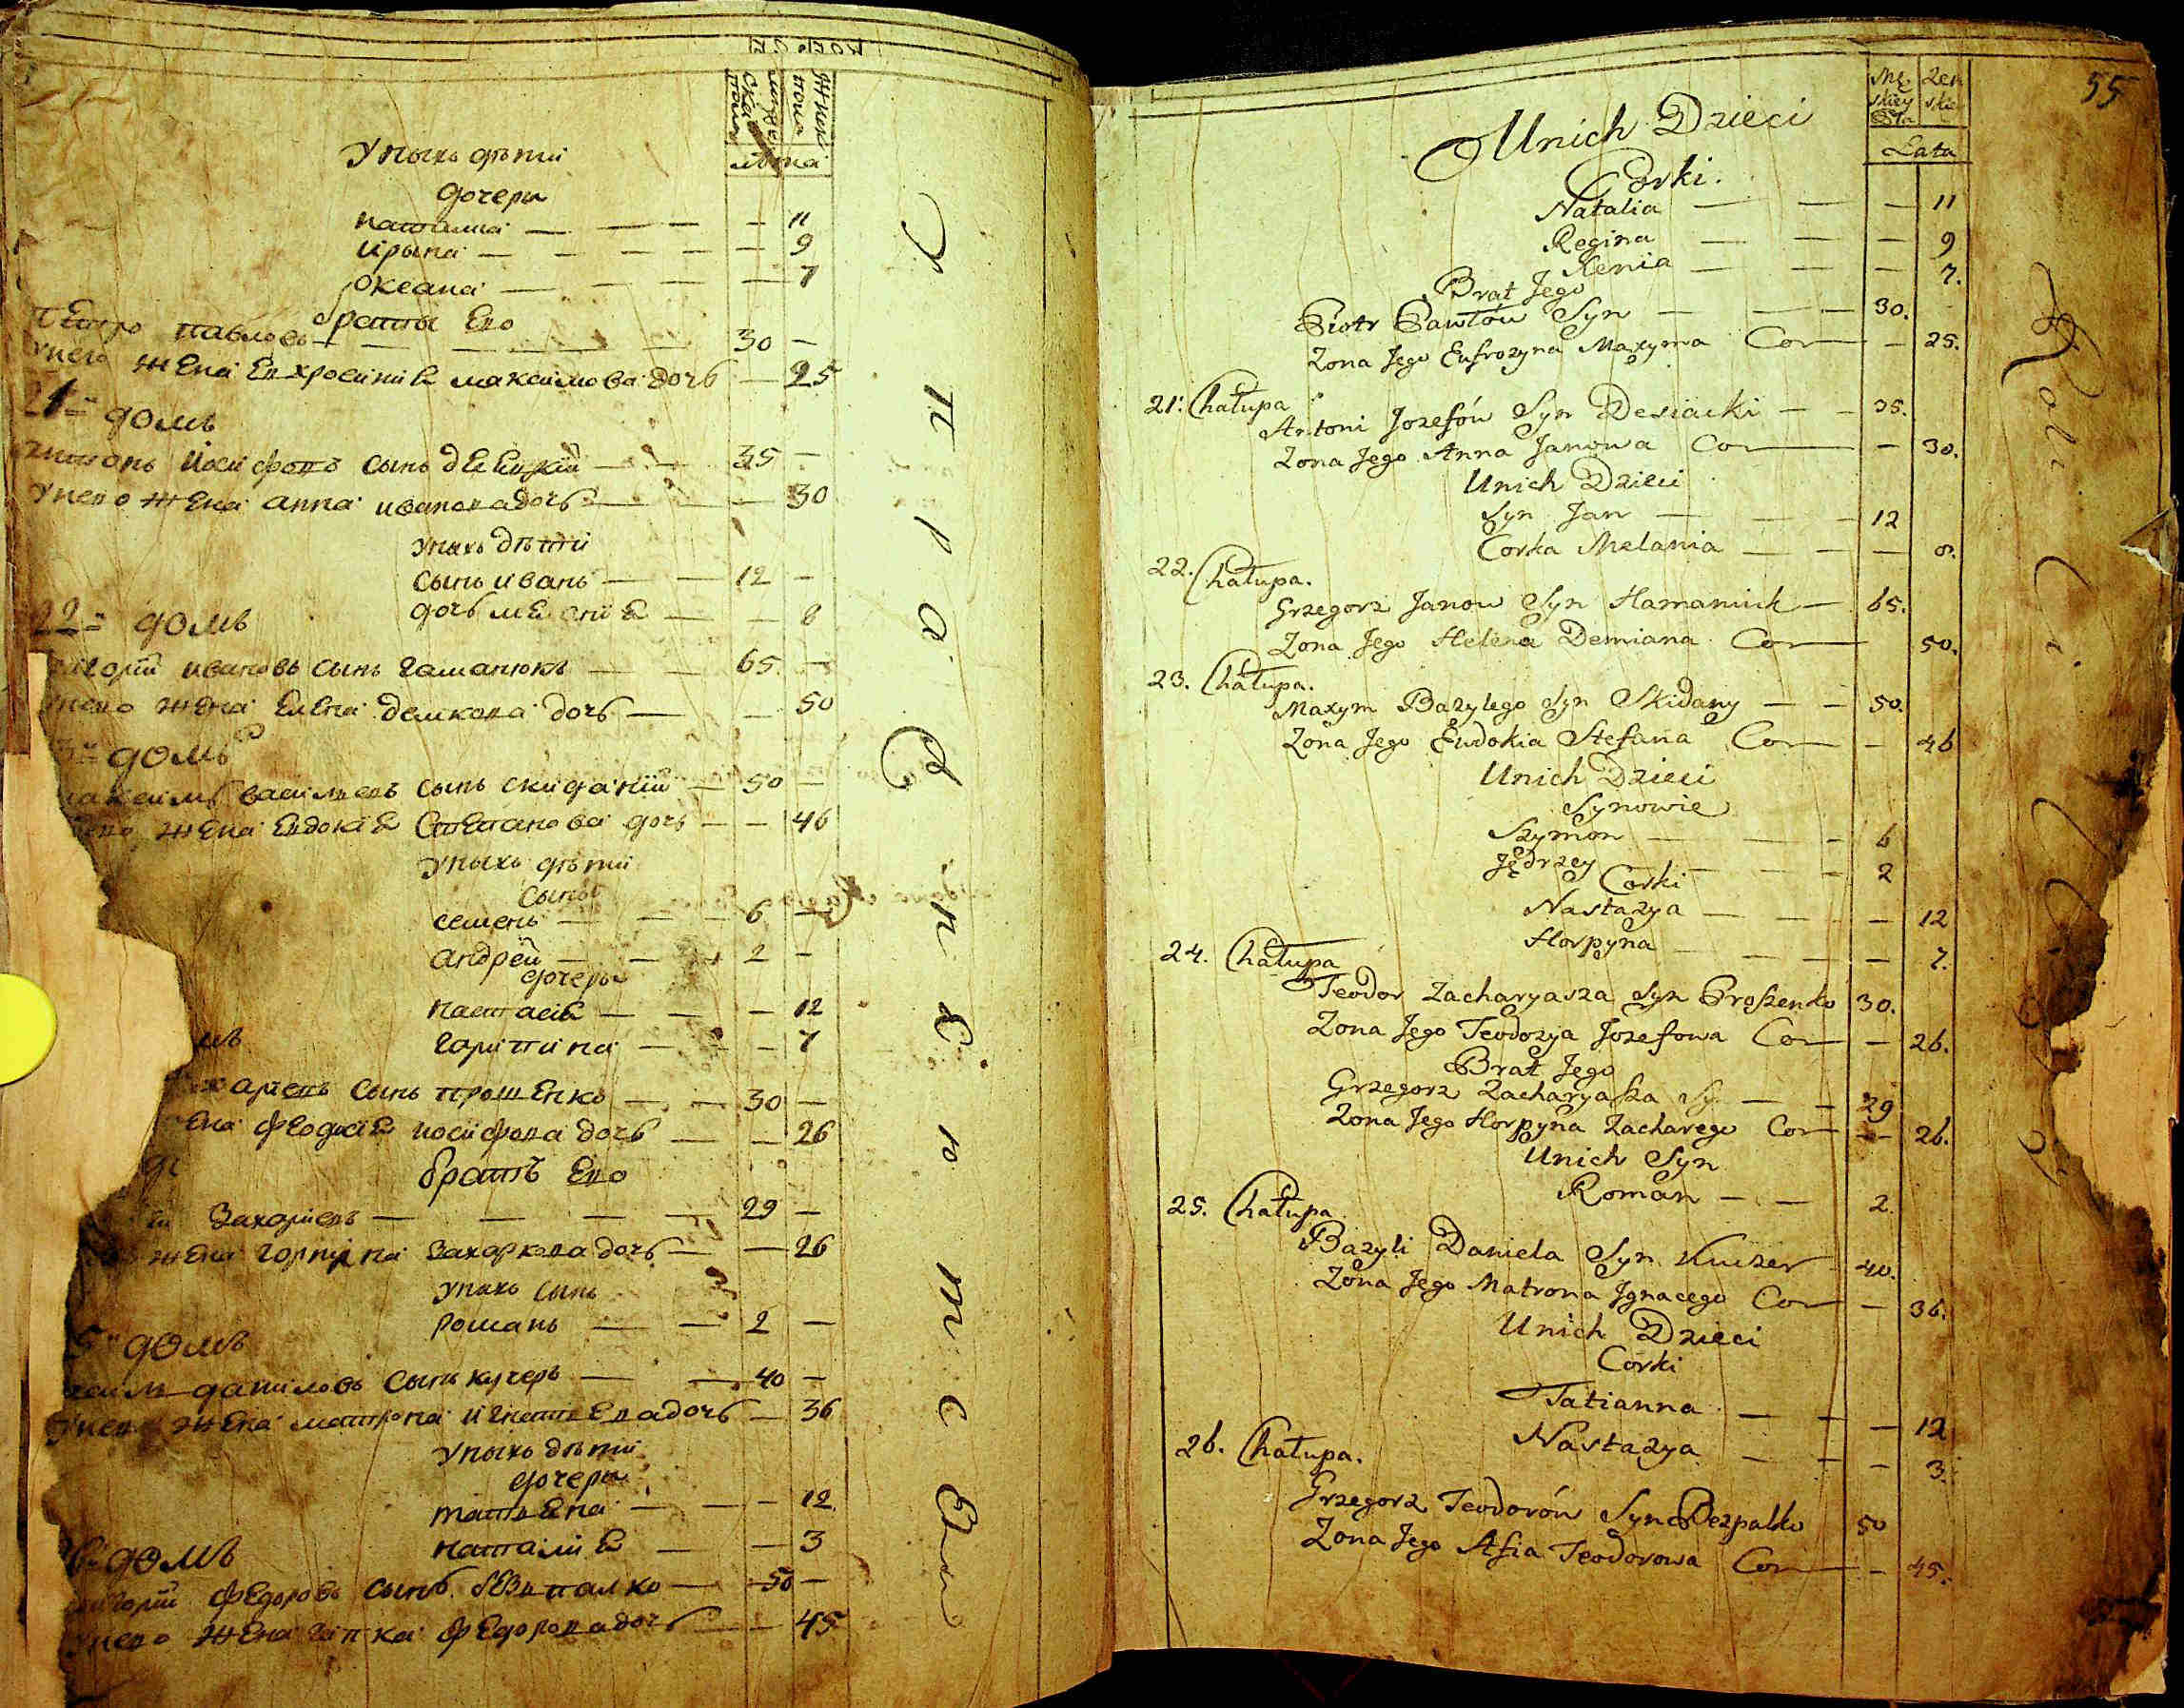 мужеска пола
женск пола
лѣта
У ныхъ дѣти
дочери
наталиа — — — — 11
ирына — — — — 9
Оксана — — — — 7
братъ Его
Петро павловъ — — — 30 —
У него жена Евхросиниѣ максимова дочь — 25
21ъ домъ
Антонъ Иосифовъ сынъ — — 35 —
У него жена анна иванова дочь — — 30
У ныхъ дѣти
сынъ иванъ — — 12 —
дочь меланиѣ — — 8
22ъ домъ
ивановъ сынъ гаманюкъ — — 65 —
жена Елена демкова дочь — — 50
домъ
василиевъ сынъ скиданий — 50 —
жена Евдокиѣ Степанова дочь — — 46
У ныхъ дѣти
сыны
семенъ — — — 6 —
андрей — — — 2 —
дочеры
настасиѣ — — — 12
гарпина — — — 7
сынъ прошенко — — 30 —
иосифова дочь — — 26
братъ Его
Захариевъ — — — — 29 —
жена горпина Захаркова дочь — — 26
У ныхъ сынъ
романъ — — 2 —
домъ
даниловъ сынъ кучеръ — — 40 —
У него жена матрона игнатиева дочь — 36
У ныхъ дѣти
дочеры
татиена — — — 12.
наталиѣ — — 3
домъ
федоровъ сынъ безпалко — 50 —
У него жена гапка федорова дочь — — 45
55
Mę skiey Płci
Żeń skiey
Lata
Unich Dzieci
Corki.
Natalia — — — 11
Regina — — — 9
Xenia — — — 7.
Brat Jego
Piotr Pawłów Syn — — — 30.
Zona Jego Eufrozyna Maxyma Cor — — 25.
21. Chałupa
Antoni Jozefów Syn Desiacki — — 35.
Zona Jego Anna Janowa Cor — — 30.
Unich Dzieci
Syn Jan — — — 12
Corka Melania — — — 8.
22. Chałupa.
Grzegorz Janow Syn Hamaniuk — 65.
Zona Jego Helena Demiana Cor — 50.
23. Chałupa.
Maxym Bazylego Syn Skidany — — 50.
Zona Jego Eudokia Stefana Cor — — 46
Unich Dzieci
Synowie
Szymon — — — 6
Jędrzey — — — 2
Corki
Nastazya — — — 12
Horpyna — — — — 7.
24. Chałupa
Teodor Zacharyasza Syn Proszenko 30.
Zona Jego Teodozya Jozefowa Cor — — 26.
Brat Jego
Grzegorz Zacharyasza Sy — — 29
Zona Jego Horpyna Zacharego Cor — — 26.
Unich Syn
Roman — — 2.
25. Chałupa
Bazyli Daniela Syn Kuczer 40.
Zona Jego Matrona Jgnacego Cor — — 36.
Unich Dzieci
Corki
Tatianna — — — 12
Nastazya — — — 3.
26. Chałupa.
Grzegorz Teodorów Syn Bezpalko 50
Zona Jego Afia Teodorowa Cor — — 45.